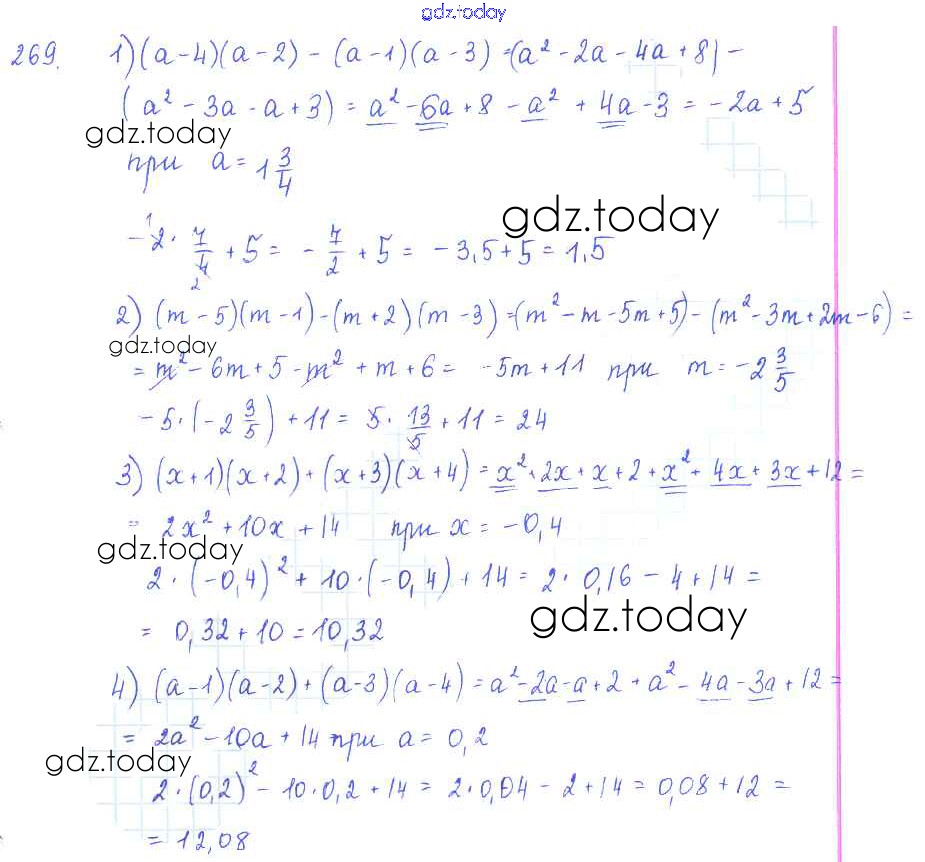 gdz.today
269. 1) (a-4)(a-2) - (a-1)(a-3) = (a² - 2a - 4a + 8) -
(a² - 3a - a + 3) = a² - 6a + 8 - a² + 4a - 3 = -2a + 5
gdz.today
при a = 1 3/4
gdz.today
-2 · 7/4 + 5 = -7/2 + 5 = -3,5 + 5 = 1,5
2) (m-5)(m-1) - (m+2)(m-3) = (m² - m - 5m + 5) - (m² - 3m + 2m - 6) =
gdz.today
= m² - 6m + 5 - m² + m + 6 = -5m + 11 при m = -2 3/5
-5 · (-2 3/5) + 11 = 5 · 13/5 + 11 = 24
3) (x+1)(x+2) + (x+3)(x+4) = x² + 2x + x + 2 + x² + 4x + 3x + 12 =
= 2x² + 10x + 14 при x = -0,4
gdz.today
2 · (-0,4)² + 10 · (-0,4) + 14 = 2 · 0,16 - 4 + 14 =
gdz.today
= 0,32 + 10 = 10,32
4) (a-1)(a-2) + (a-3)(a-4) = a² - 2a - a + 2 + a² - 4a - 3a + 12 =
= 2a² - 10a + 14 при a = 0,2
gdz.today
2 · (0,2)² - 10 · 0,2 + 14 = 2 · 0,04 - 2 + 14 = 0,08 + 12 =
= 12,08